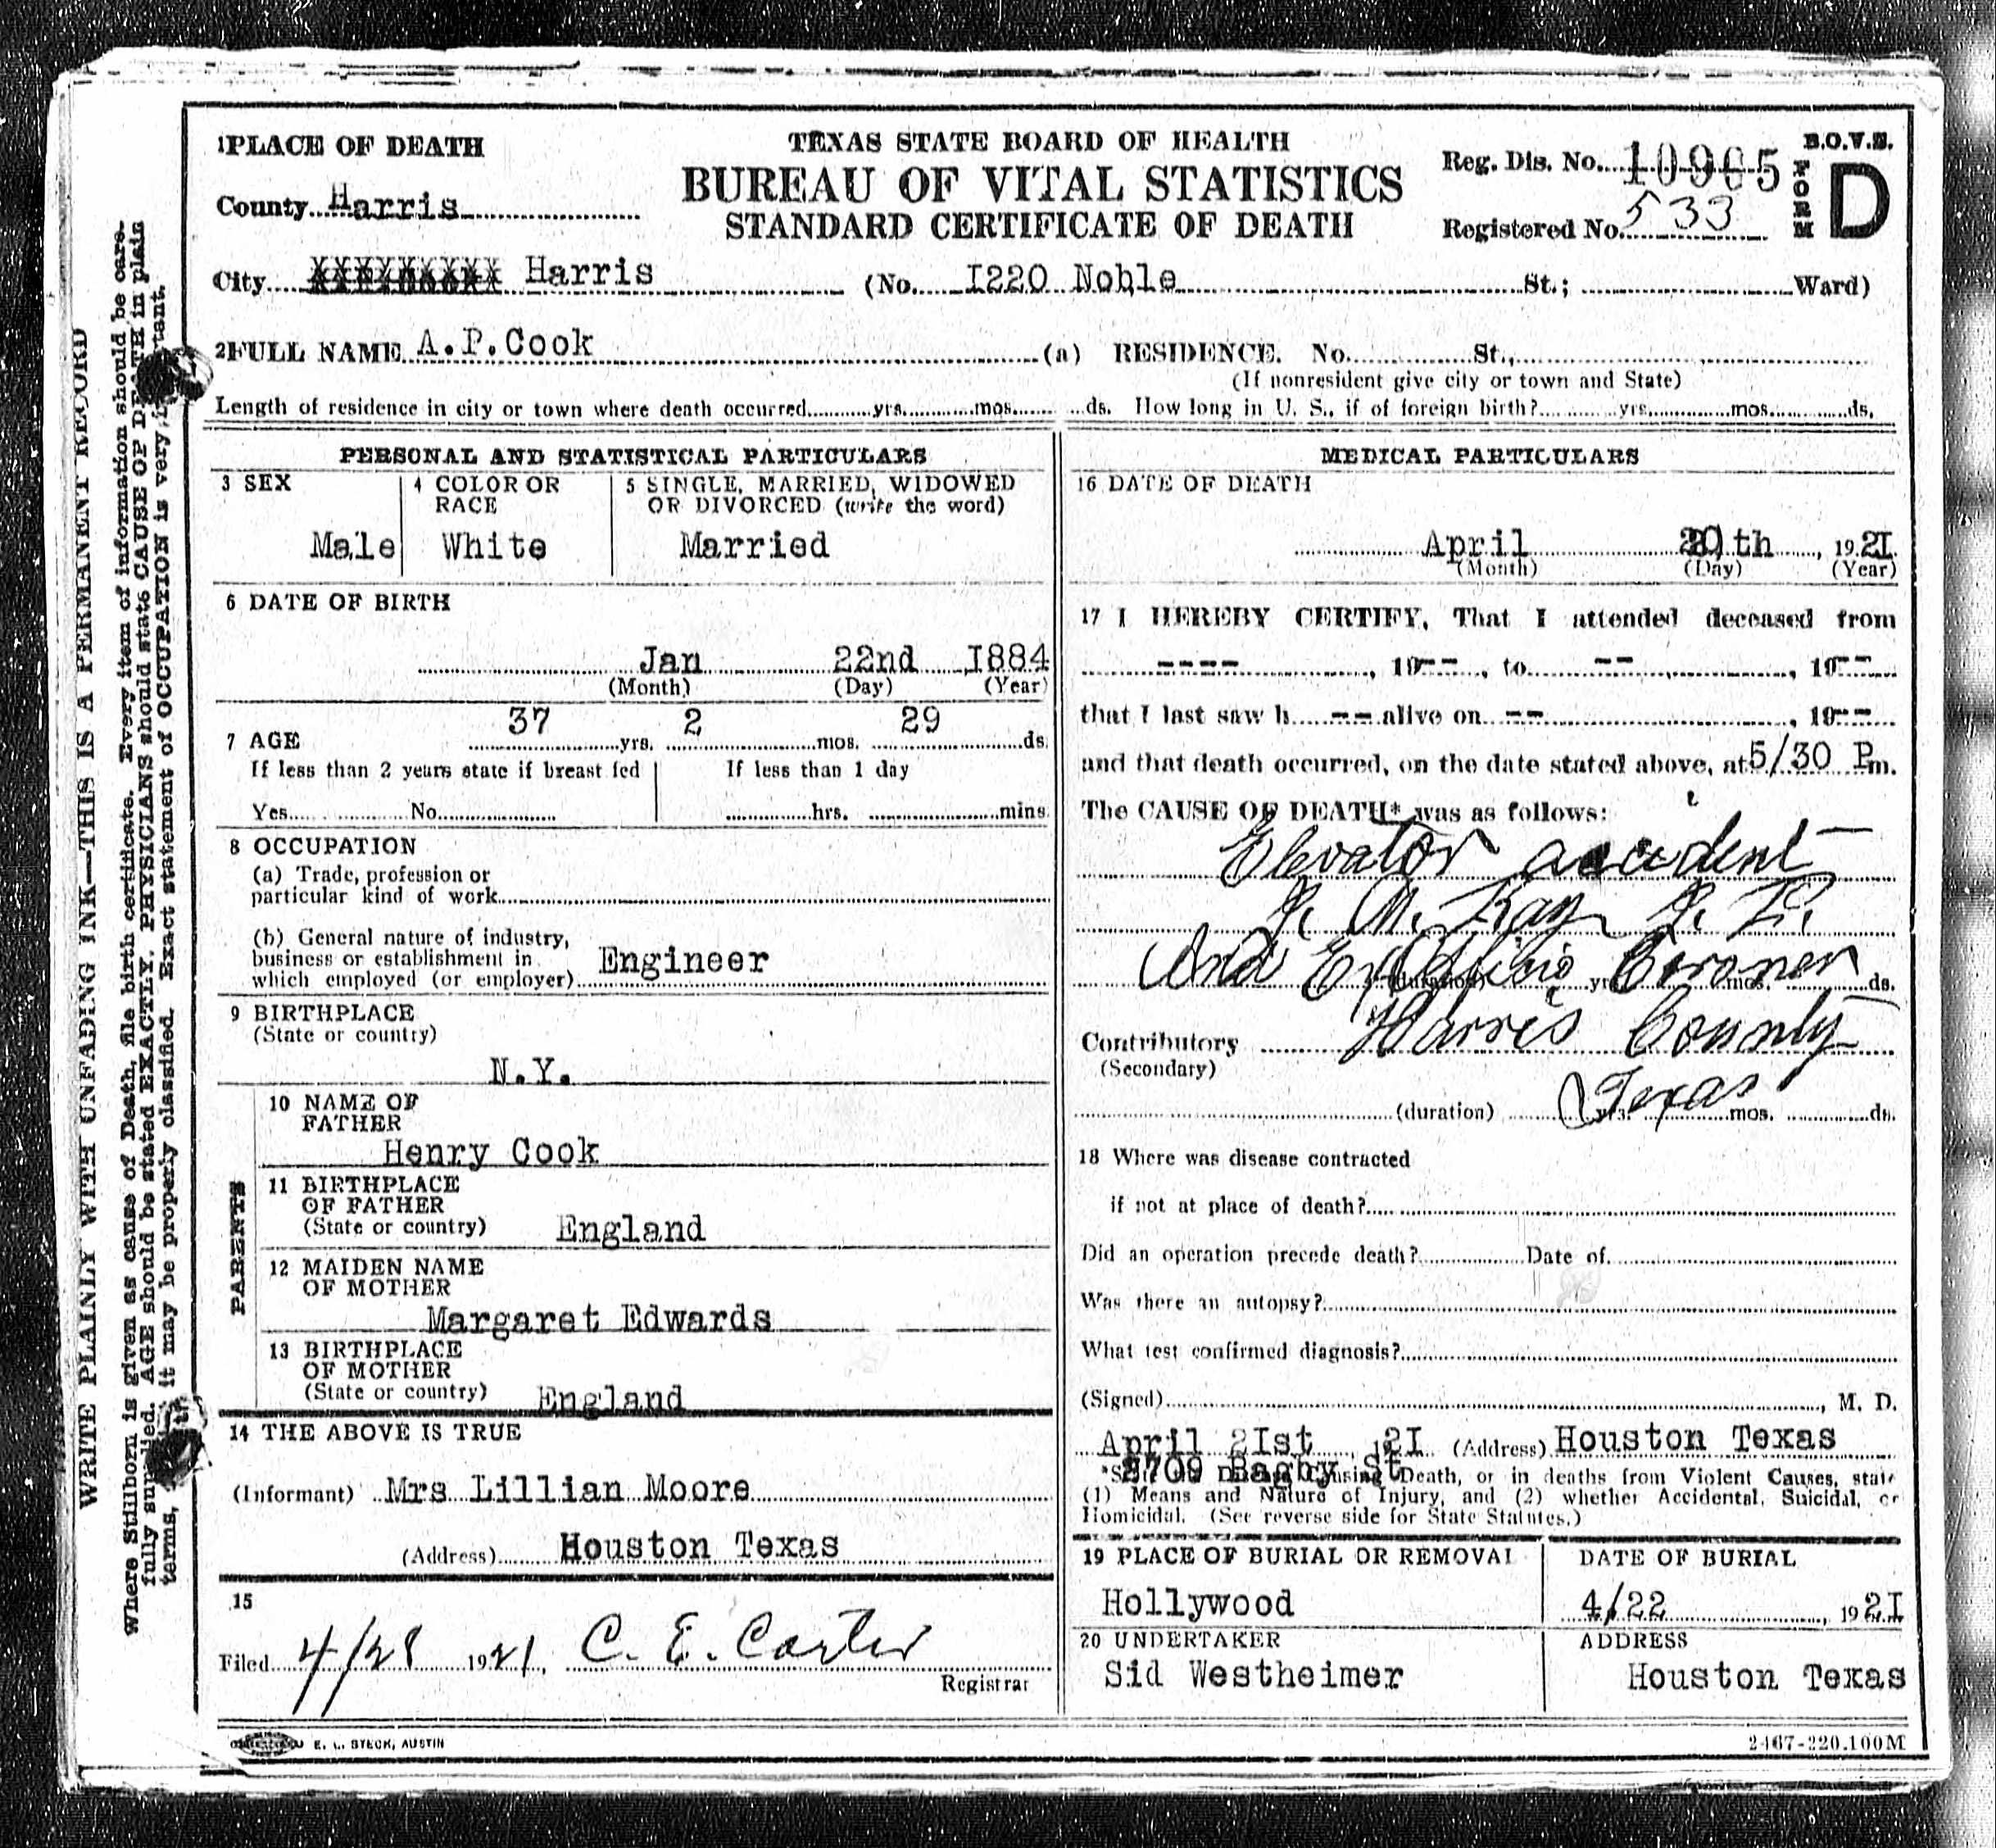 1 PLACE OF DEATH
TEXAS STATE BOARD OF HEALTH
BUREAU OF VITAL STATISTICS
STANDARD CERTIFICATE OF DEATH
Reg. Dis. No. 10965
Registered No. 533
B.O.V.S.
FORM D
County Harris
City Harris (No. I220 Noble St.; Ward)
2 FULL NAME A.P.Cook (a) RESIDENCE. No. St.,
(If nonresident give city or town and State)
Length of residence in city or town where death occurred yrs. mos. ds. How long in U. S., if of foreign birth? yrs. mos. ds.
PERSONAL AND STATISTICAL PARTICULARS
3 SEX
Male
4 COLOR OR RACE
White
5 SINGLE, MARRIED, WIDOWED
OR DIVORCED (write the word)
Married
6 DATE OF BIRTH
Jan 22nd I884
(Month) (Day) (Year)
37 2 29
7 AGE yrs. mos. ds.
If less than 2 years state if breast fed
Yes No
If less than 1 day
hrs. mins.
8 OCCUPATION
(a) Trade, profession or
particular kind of work
(b) General nature of industry,
business or establishment in
which employed (or employer) Engineer
9 BIRTHPLACE
(State or country)
N.Y.
PARENTS
10 NAME OF
FATHER
Henry Cook
11 BIRTHPLACE
OF FATHER
(State or country) England
12 MAIDEN NAME
OF MOTHER
Margaret Edwards
13 BIRTHPLACE
OF MOTHER
(State or country) England
14 THE ABOVE IS TRUE
(Informant) Mrs Lillian Moore
(Address) Houston Texas
15
Filed 4/28 1921, C. E. Carter
Registrar
MEDICAL PARTICULARS
16 DATE OF DEATH
April 20th, 192I
(Month) (Day) (Year)
17 I HEREBY CERTIFY, That I attended deceased from
----, 19--, to --, 19--
that I last saw h -- alive on --, 19--
and that death occurred, on the date stated above, at 5/30 P m.
The CAUSE OF DEATH* was as follows:
Elevator accident
J. M. Ray J. P.
And Ex Officio Coroner
(duration) yrs. mos. ds.
Contributory Harris County
(Secondary)
Texas
(duration) yrs. mos. ds.
18 Where was disease contracted
if not at place of death?
Did an operation precede death? Date of
Was there an autopsy?
What test confirmed diagnosis?
(Signed) , M. D.
April 2Ist, 192I (Address) Houston Texas
2709 Bagby St
*State the Disease Causing Death, or in deaths from Violent Causes, state
(1) Means and Nature of Injury, and (2) whether Accidental, Suicidal, or
Homicidal. (See reverse side for State Statutes.)
19 PLACE OF BURIAL OR REMOVAL
Hollywood
DATE OF BURIAL
4/22, 192I
20 UNDERTAKER
Sid Westheimer
ADDRESS
Houston Texas
E. L. STECK, AUSTIN
2467-220.100M
WRITE PLAINLY WITH UNFADING INK—THIS IS A PERMANENT RECORD
Where Stillborn is given as cause of Death, file birth certificate. Every item of information should be care-
fully supplied. AGE should be stated EXACTLY. PHYSICIANS should state CAUSE OF DEATH in plain
terms, it may be properly classified. Exact statement of OCCUPATION is very important.